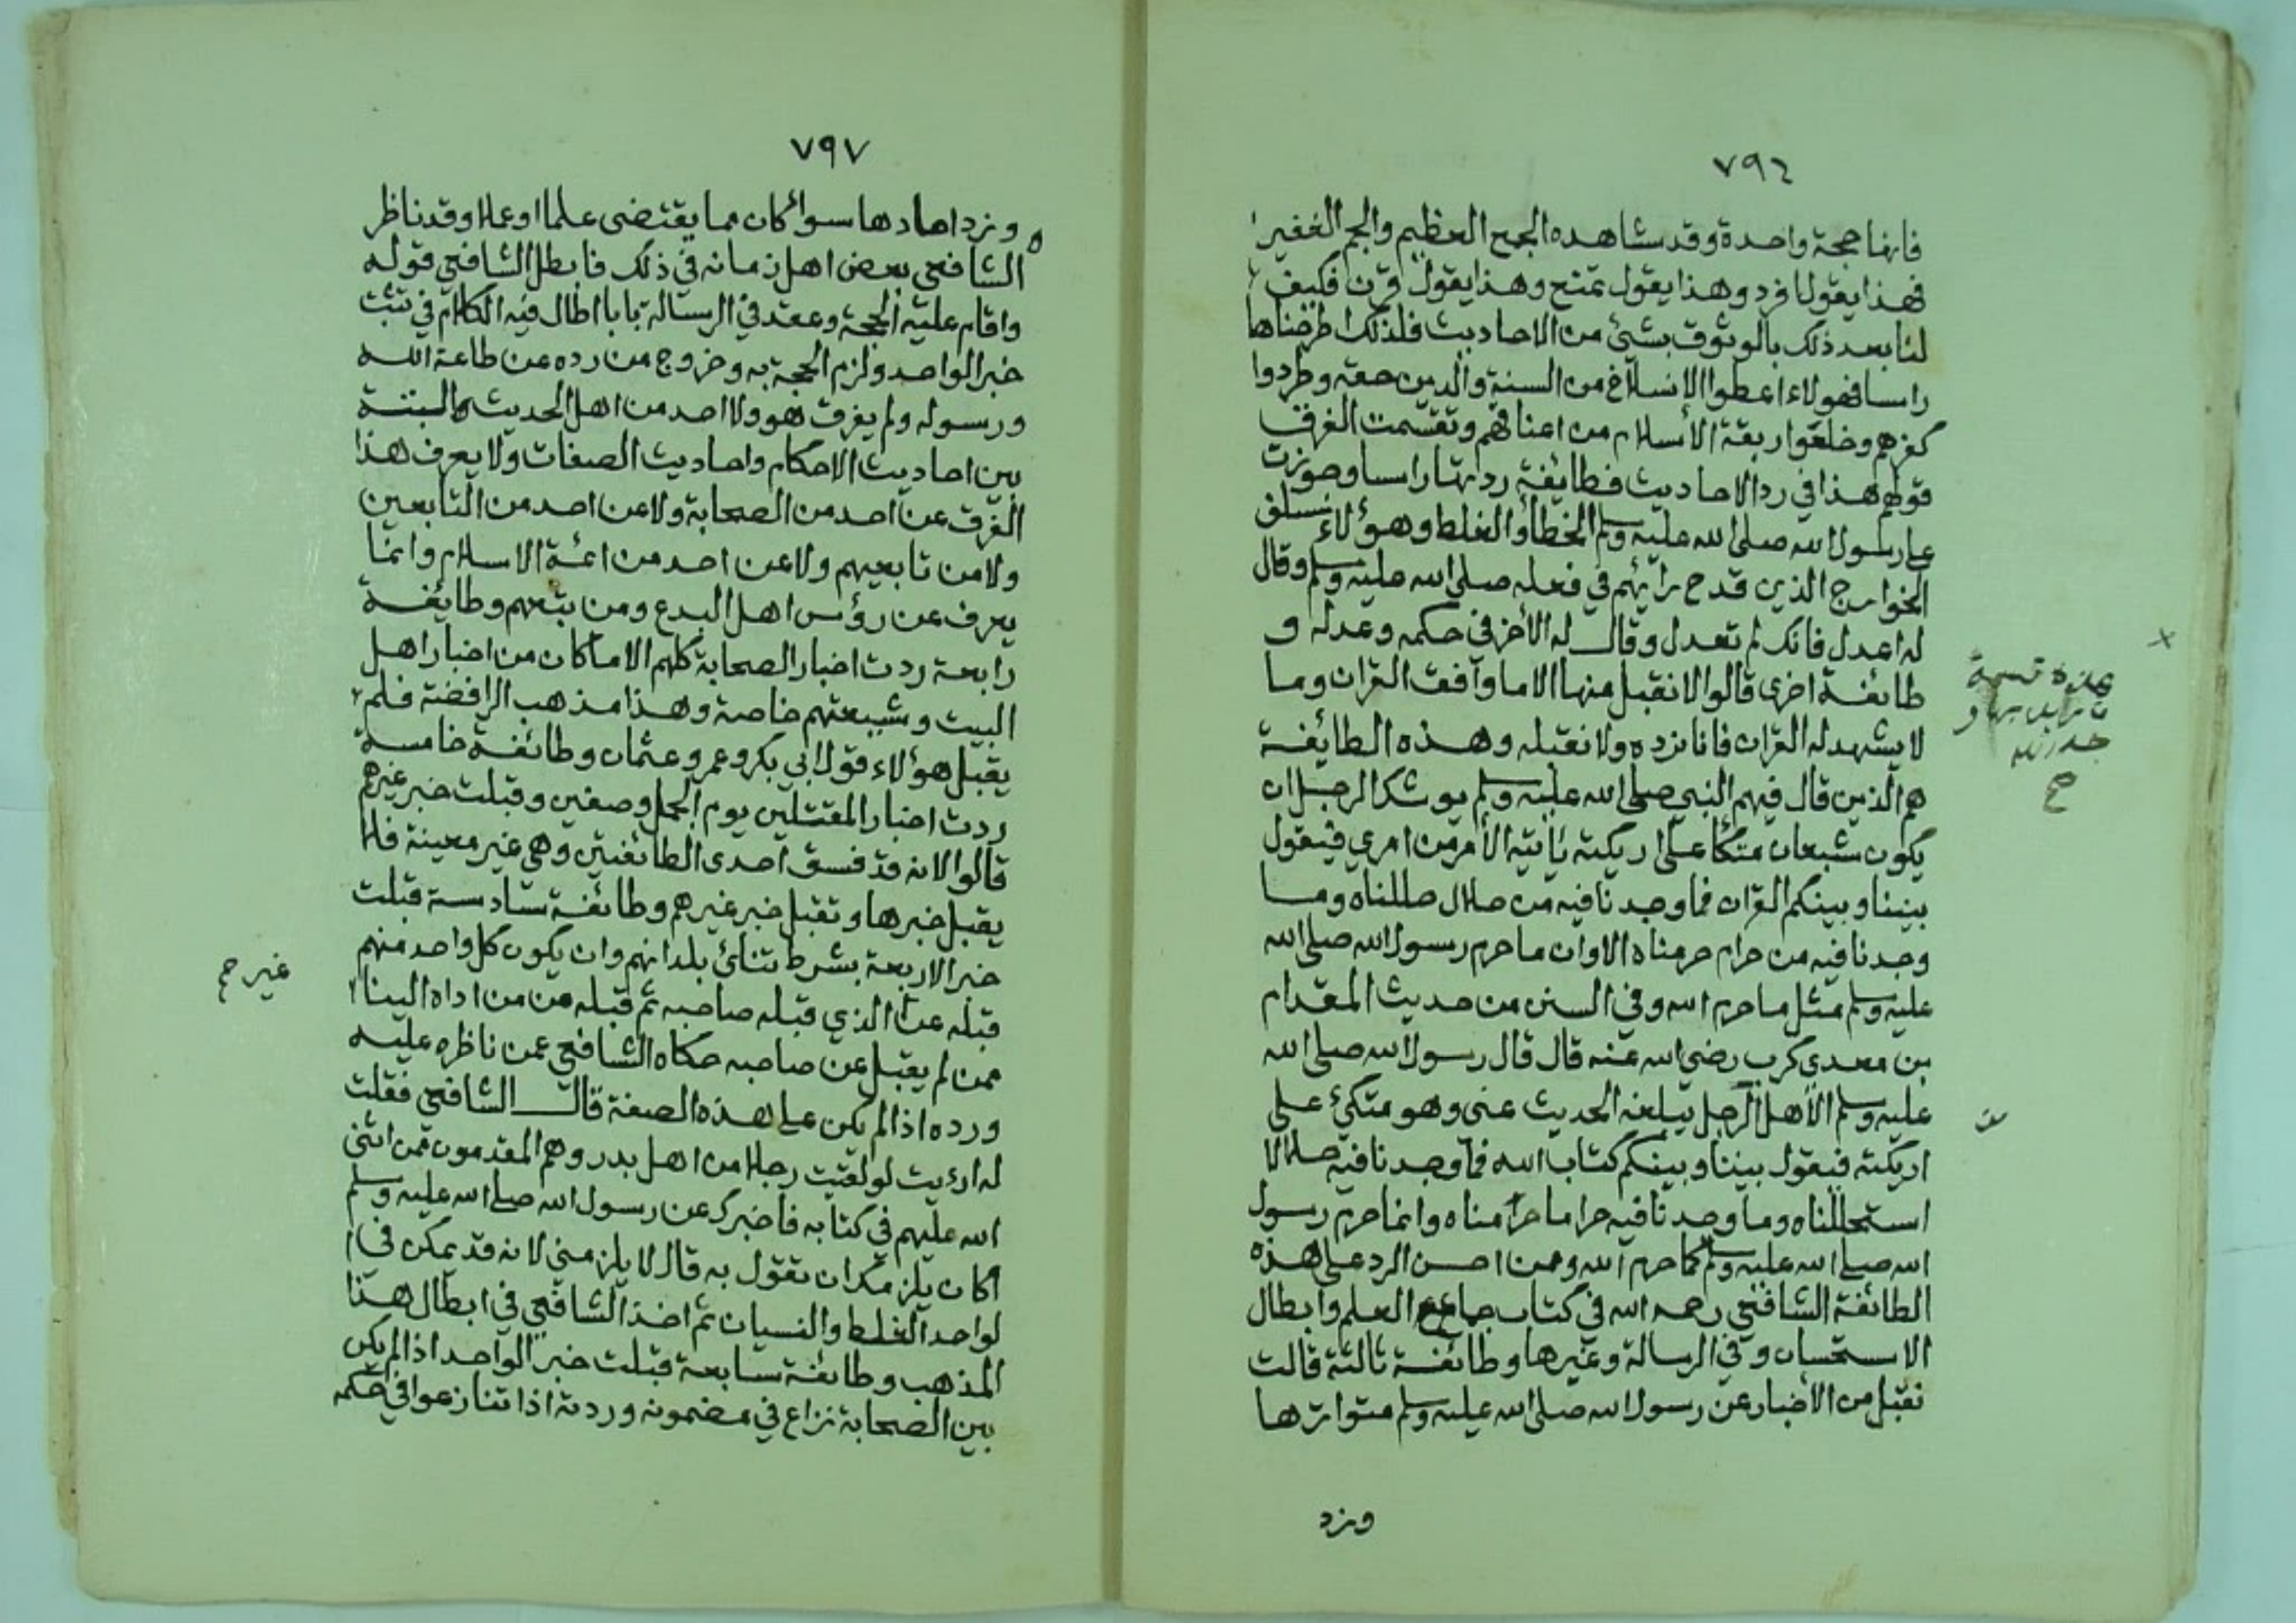 ٧٩٦
فانها حجة واحدة وقد شاهده الجمع العظيم والجم الغفير
فهذا يقول افرد وهذا يقول تمتع وهذا يقول قرن فكيف
لنا بعد ذلك بالوثوق بشئ من الاحاديث فلذلك اطرحناها
راسا فهولاء اعطوا الانسلاخ من السنة والدين حقه وطردوا
كفرهم وخلعوا ربقة الأسلام من اعناقهم وتقسمت الفرق
قولهم هذا في رد الاحاديث فطايفة ردتها راسا وجوزت
على رسول الله صلى الله عليه وسلم الخطأ والغلط وهؤلاء سلف
الخوارج الذين قدح رايهم في فعله صلى الله عليه وسلم وقال
له اعدل فانك لم تعدل وقال له الأخر في حكمه وعدله و
طائفة اخرى قالوا لا نقبل منها الا ما وافق القران وما
لا يشهد له القران فانا نرده ولا نقبله وهذه الطايفة
هم الذين قال فيهم النبي صلى الله عليه وسلم يوشك الرجل ان
يكون شبعان متكأ على اريكته ياتيه الأمر من امري فيقول
بيننا وبينكم القران فما وجدنا فيه من حلال حللناه وما
وجدنا فيه من حرام حرمناه الا وان ما حرم رسول الله صلى الله
عليه وسلم مثل ما حرم الله وفي السنن من حديث المقدام
بن معدي كرب رضي الله عنه قال قال رسول الله صلى الله
عليه وسلم الأهل الرجل يبلغه الحديث عني وهو متكئ على
اريكته فيقول بيننا وبينكم كتاب الله فما وجدنا فيه حلالا
استحللناه وما وجدنا فيه حراما حرمناه وانما حرم رسول
الله صلى الله عليه وسلم كما حرم الله وممن احسن الرد على هذه
الطائفة الشافعي رحمه الله في كتاب جماع العلم وابطال
الاستحسان وفي الرسالة وغيرها وطائفة ثالثة قالت
نقبل من الأخبار عن رسول الله صلى الله عليه وسلم متواترها
ونرد
٧٩٧
ونرد احادها سوائكان مما يقتضى علما او عملا وقد ناظر
الشافعي بعض اهل زمانه في ذلك فابطل الشافعي قوله
واقام عليه الحجة وعقد في الرسالة بابا اطال فيه الكلام في تثبت
خبر الواحد ولزم الحجة به وخروج من رده عن طاعة الله
ورسوله ولم يفرق هو ولا احد من اهل الحديث والسنة
بين احاديث الاحكام واحاديث الصفات ولا يعرف هذا
الفرق عن احد من الصحابة ولا عن احد من التابعين
ولا من تابعيهم ولا عن احد من ائمة الاسلام وانما
يعرف عن رؤس اهل البدع ومن تبعهم وطايفة
رابعة ردت اخبار الصحابة كلهم الا ما كان من اخبار اهل
البيت وشيعتهم خاصة وهذا مذهب الرافضة فلم
يقبل هؤلاء قول ابي بكر وعمر وعثمان وطائفة خامسة
ردت اخبار المقتتلين يوم الجمل وصفين وقبلت خبر غيرهم
قالوا لانه قد فسق احدى الطائفتين وهي غير معينة فلا
يقبل خبرها وتقبل خبر غيرهم وطائفة سادسة قبلت
خبر الاربعة بشرط تنائ بلدانهم وان يكون كل واحد منهم
قبله عن الذي قبله صاحبه ثم قبله من من اداه الينا
ممن لم يقبل عن صاحبه حكاه الشافعي عمن ناظره عليه
ورده اذا لم يكن على هذه الصفة قال الشافعي فقلت
له ارءيت لو لقيت رجلا من اهل بدر وهم المقدمون ممن اثنى
الله عليهم في كتابه فاخبرك عن رسول الله صلى الله عليه وسلم
اكان يلزمك ان تقول به قال لا يلزمني لانه قد يمكن في ا
لواحد الغلط والنسيان ثم اخذ الشافعي في ابطال هذا
المذهب وطائفة سابعة قبلت خبر الواحد اذا لم يكن
بين الصحابة نزاع في مضمونه وردته اذا تنازعوا في حكمه
غير